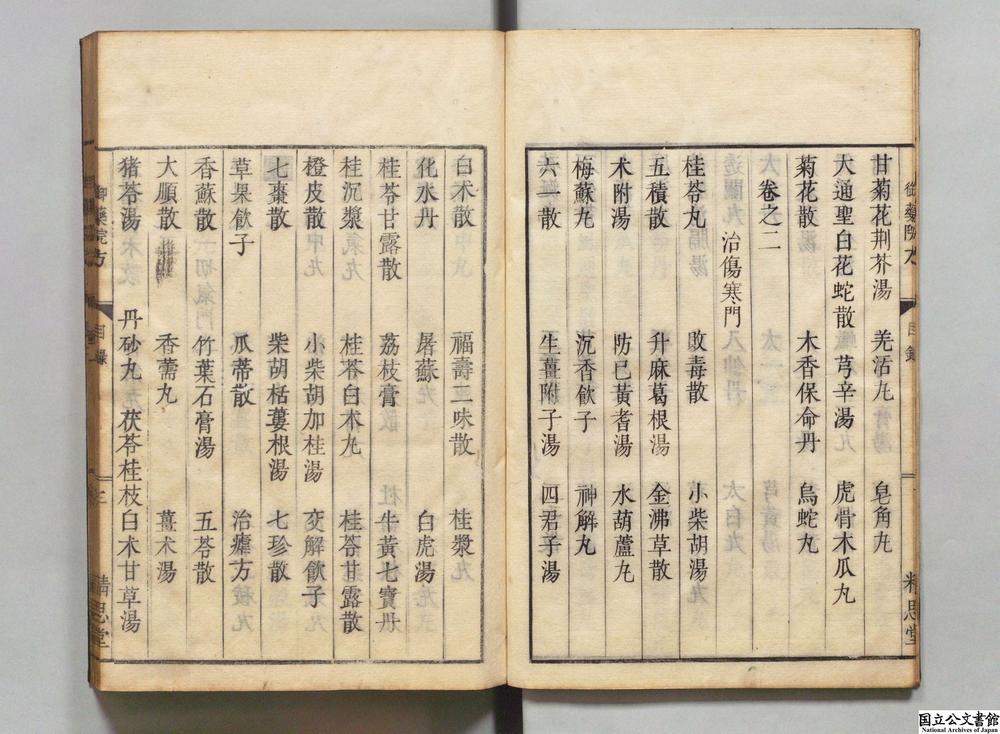 甘菊花荆芥湯 羗活丸 皂角丸
大通聖白花蛇散 芎辛湯 虎骨木瓜丸
菊花散 木香保命丹 烏蛇丸
卷之二
治傷寒門
桂苓丸 敗毒散 小柴胡湯
五積散 升麻葛根湯 金沸草散
术附湯 防已黃耆湯 水葫蘆丸
梅蘇丸 沉香飲子 神解丸
六一散 生薑附子湯 四君子湯
白术散 福壽三味散 桂漿
化水丹 屠蘇 白虎湯
桂苓甘露散 荔枝膏 牛黃七寶丹
桂沉漿 桂苓白术丸 桂苓甘露散
橙皮散 小柴胡加桂湯 变解飲子
七棗散 柴胡栝蔞根湯 七珍散
草果飲子 瓜蒂散 治瘧方
香蘇散 竹葉石膏湯 五苓散
大順散 香薷丸 薑术湯
猪苓湯 丹砂丸 茯苓桂枝白术甘草湯
御藥院方 目錄 三 精思堂
国立公文書館
National Archives of Japan